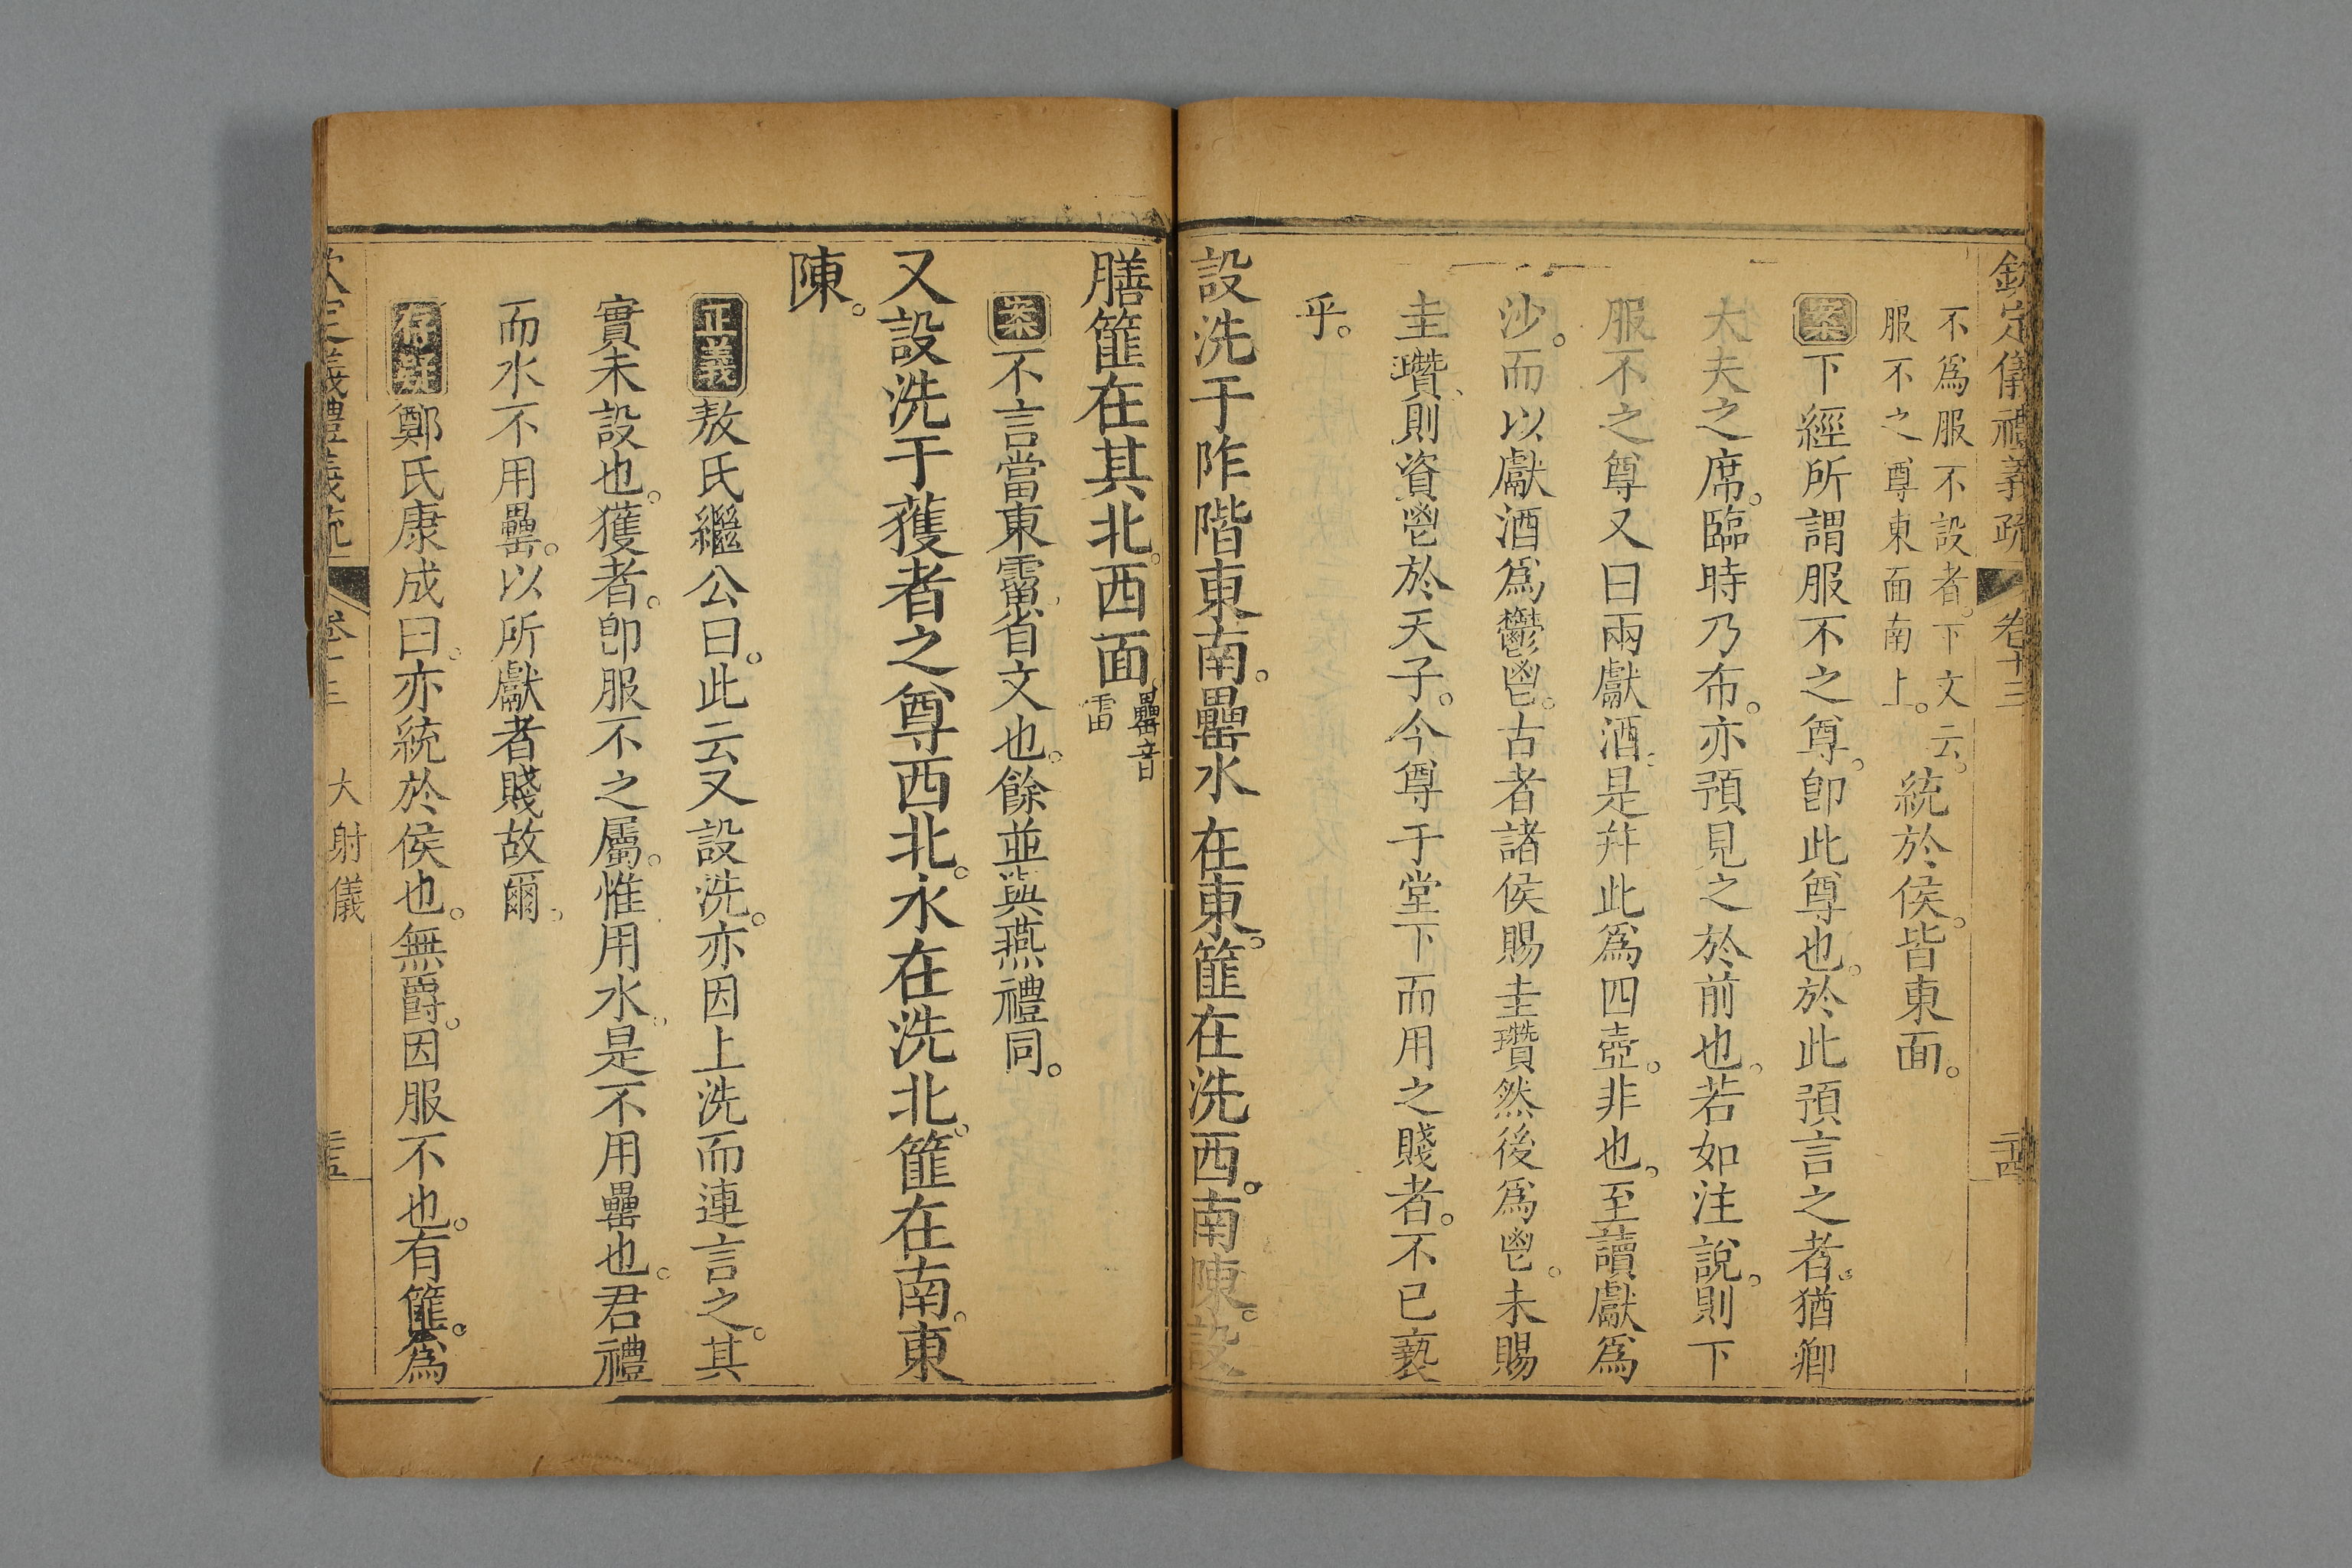 欽定儀禮義疏 卷十三 二十四
不爲服不設者。下文云。
服不之尊東面南上。統於侯。皆東面。
案下經所謂服不之尊。卽此尊也。於此預言之者。猶卿
大夫之席。臨時乃布。亦預見之於前也。若如注說。則下
服不之尊又曰兩獻酒。是幷此爲四壺。非也。至讀獻爲
沙。而以獻酒爲鬱鬯。古者諸侯賜圭瓚然後爲鬯。未賜
圭瓚。則資鬯於天子。今尊于堂下而用之賤者。不已褻
乎。
設洗于阼階東南。罍水在東。篚在洗西。南陳。設
膳篚在其北。西面。罍音
雷
案不言當東霤。省文也。餘並與燕禮同。
又設洗于獲者之尊西北。水在洗北。篚在南。東
陳。
正義敖氏繼公曰。此云又設洗。亦因上洗而連言之。其
實未設也。獲者。卽服不之屬。惟用水。是不用罍也。君禮
而水不用罍。以所獻者賤故爾。
存疑鄭氏康成曰。亦統於侯也。無爵。因服不也。有篚。爲
欽定儀禮義疏 卷十三 大射儀 二十五